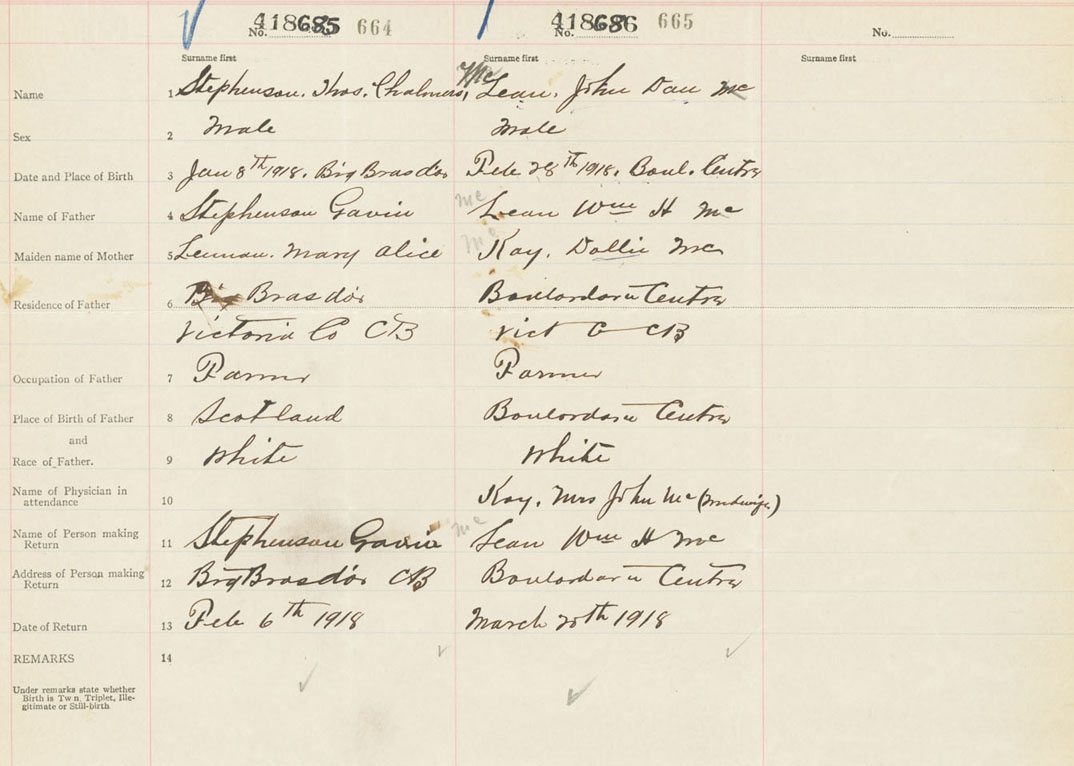 No. 418685 664
No. 418686 665
No.
Surname first Surname first Surname first
Name 1 Stephenson. Thos. Chalmers, Mc Lean, John Dan Mc
Sex 2 Male Male
Date and Place of Birth 3 Jan 8th 1918. Big Brasdor Feb 28th 1918. Boul. Centre
Name of Father 4 Stephenson Gavin Mc Lean Wm H Mc
Maiden name of Mother 5 Mary Alice Mc Kay, Dollie Mc
Residence of Father 6 Big Brasdor Boulardarie Centre
Victoria Co CB Vict Co CB
Occupation of Father 7 Farmer Farmer
Place of Birth of Father 8 Scotland Boulardarie Centre
and
Race of Father. 9 White White
Name of Physician in attendance 10 Kay, Mrs John Mc (Midwife)
Name of Person making Return 11 Stephenson Gavin Mc Lean Wm H Mc
Address of Person making Return 12 Big Brasdor CB Boulardarie Centre
Date of Return 13 Feb 6th 1918 March 20th 1918
REMARKS 14
Under remarks state whether
Birth is Twin, Triplet, Ille-
gitimate or Still-birth